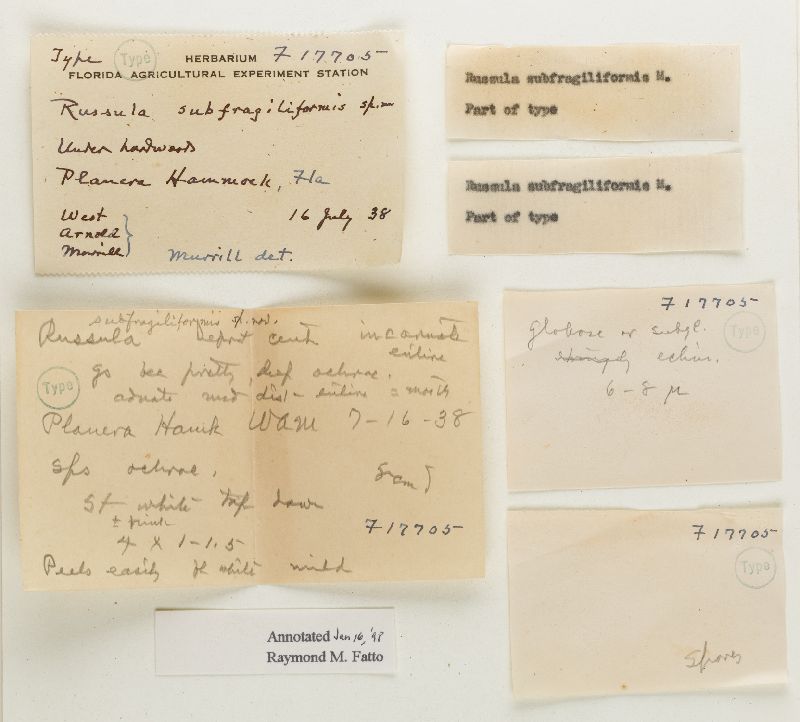 Type Type HERBARIUM F 17705
FLORIDA AGRICULTURAL EXPERIMENT STATION
Russula subfragiliformis sp. n
Under hardwoods
Planera Hammock, Fla
West 16 July 38
Arnold
Murrill
Murrill det.
Russula subfragiliformis M.
Part of type
Russula subfragiliformis M.
Part of type
subfragiliformis sp. nov.
Russula depr cent incarnate
entire
gs bec pretty deep ochrac.
Type
adnate med dist entire
Planera Hamk WAM 7-16-38
sps ochrac. 5 cm
St white tap down
± pink
F 17705
4 x 1-1.5
Peels easily fl white mild
F 17705
Type
Globose or subgl.
echin.
6-8 µ
F 17705
Type
Spores
Annotated Jan 16, '98
Raymond M. Fatto